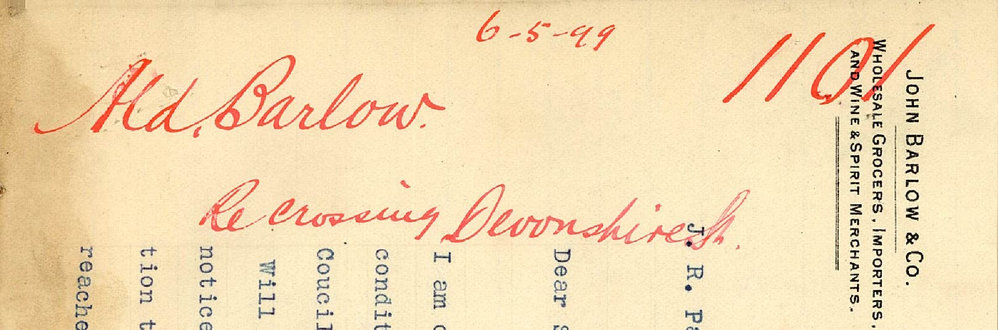 6-5-99
1101
Ald. Barlow.
Re crossing Devonshire St.
JOHN BARLOW & CO.
WHOLESALE GROCERS, IMPORTERS,
AND WINE & SPIRIT MERCHANTS.
J. R. Pa
Dear s
I am
condit
Coucil
Will
notice
tion t
reache